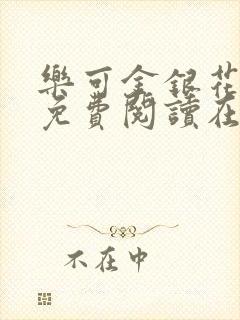 樂可金銀花
免費閱讀在
不在中